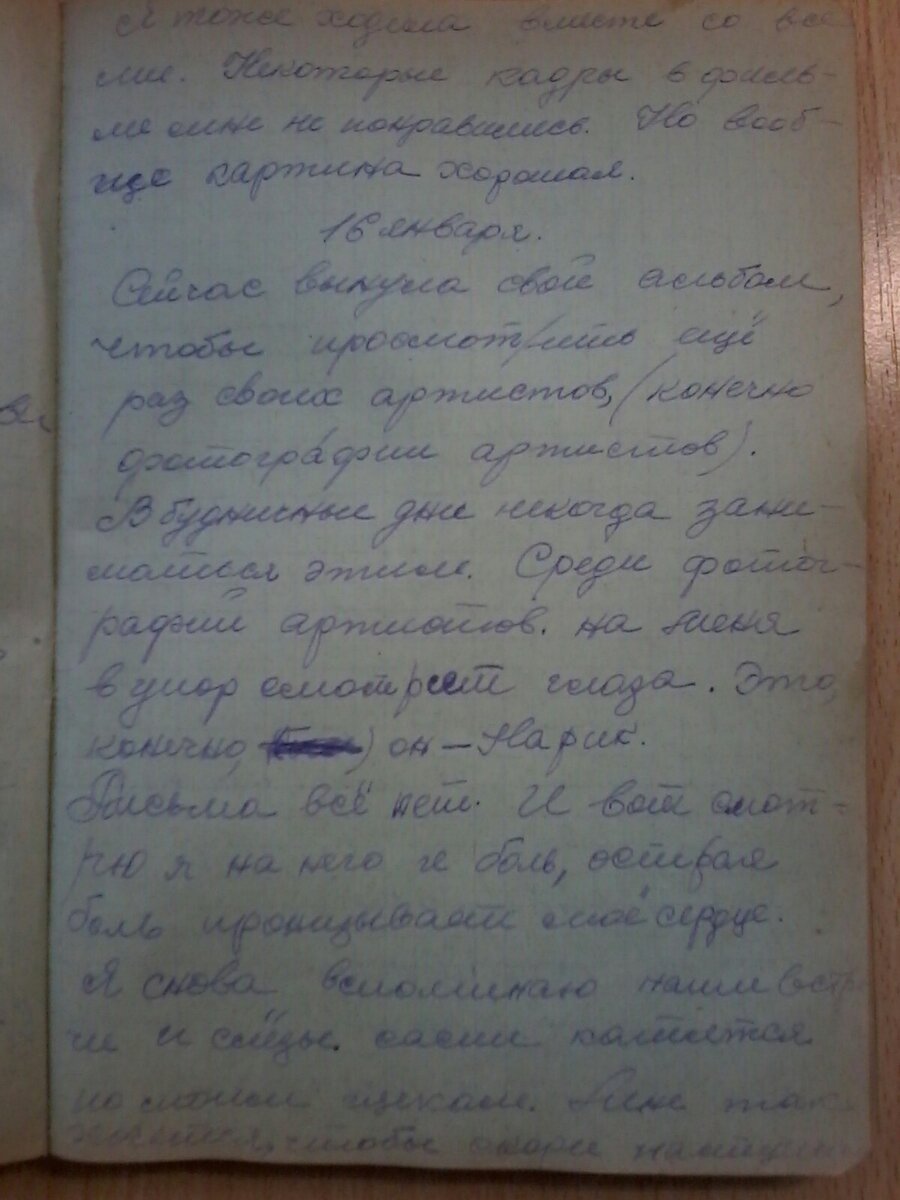 Я тоже ходила вместе со все
ми. Некоторые кадры в филь-
ме мне не понравились. Но вооб-
ще картина хорошая.
16 января.
Сейчас вынула свой альбом,
чтобы просмотреть ещё
раз своих артистов, (конечно
фотографии артистов).
В будничные дни некогда зани-
маться этим. Среди фотог-
рафий артистов. на меня
в упор смотрят глаза. Это,
конечно, он – Марик.
Письма всё нет. И вот смот-
рю я на него и боль, острая
боль пронизывает моё сердце.
Я снова вспоминаю наши встре
чи и слёзы. сами катятся
по моим щекам. Мне так
чтобы скорее